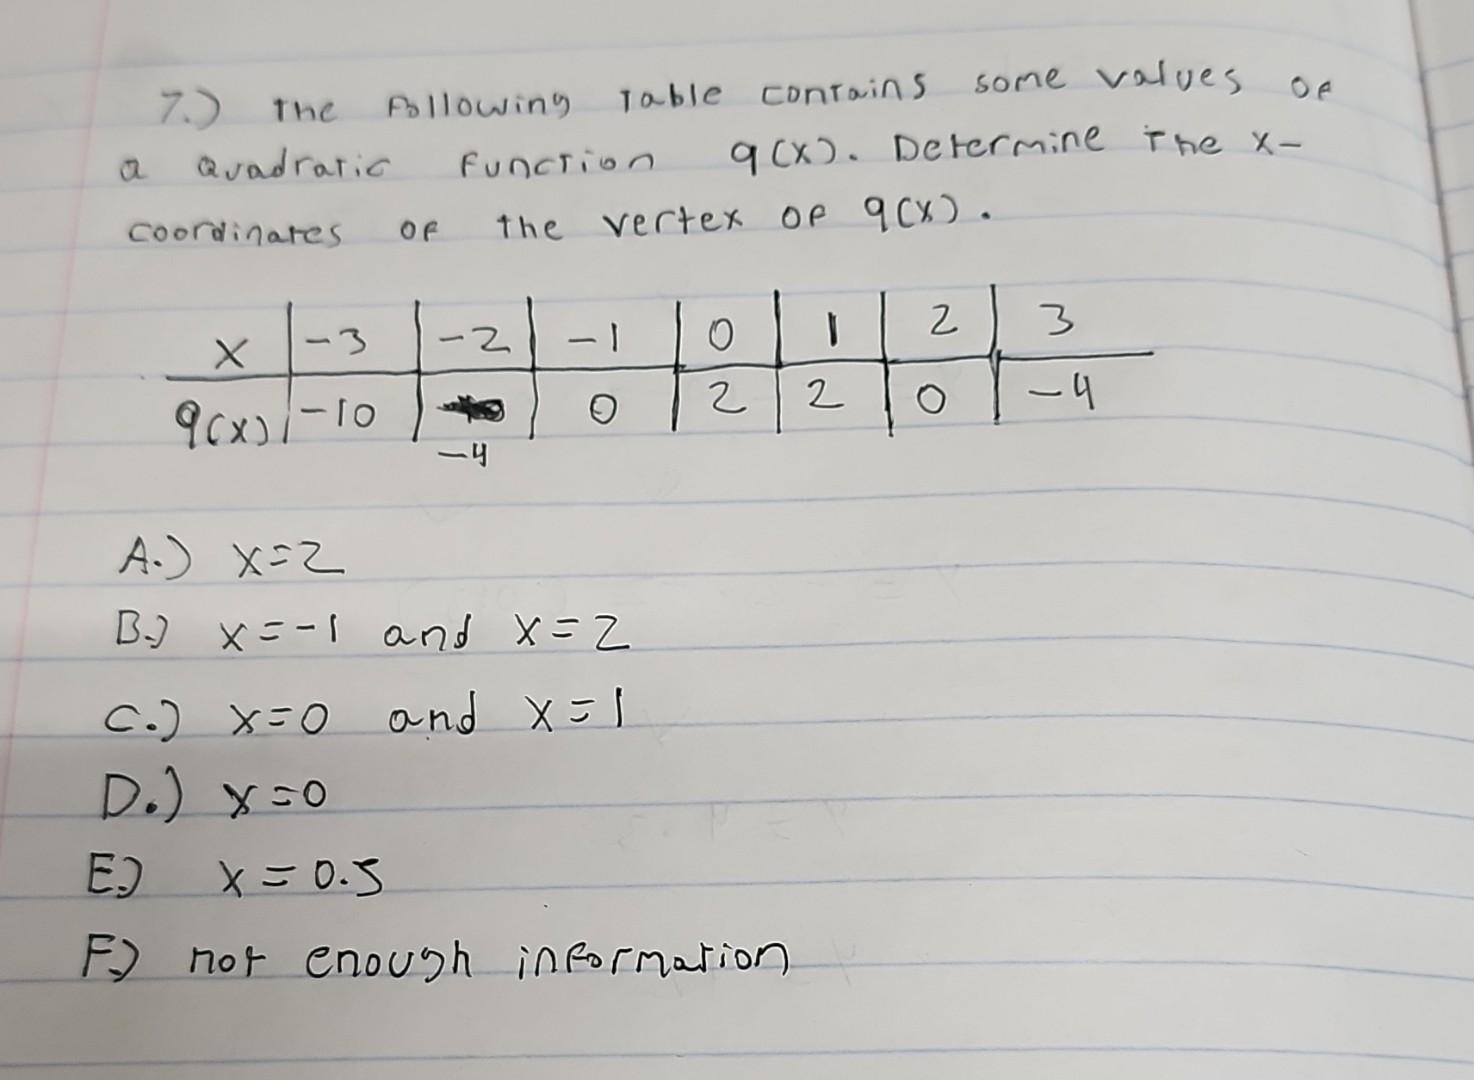 7.) The following Table contains some values of
a Quadratic function q(x). Determine The x-
coordinates of the vertex of q(x).
x | -3 | -2 | -1 | 0 | 1 | 2 | 3
q(x) | -10 | | 0 | 2 | 2 | 0 | -4
-4
A.) x=2
B.) x=-1 and x=2
C.) x=0 and x=1
D.) x=0
E.) x=0.5
F.) not enough information